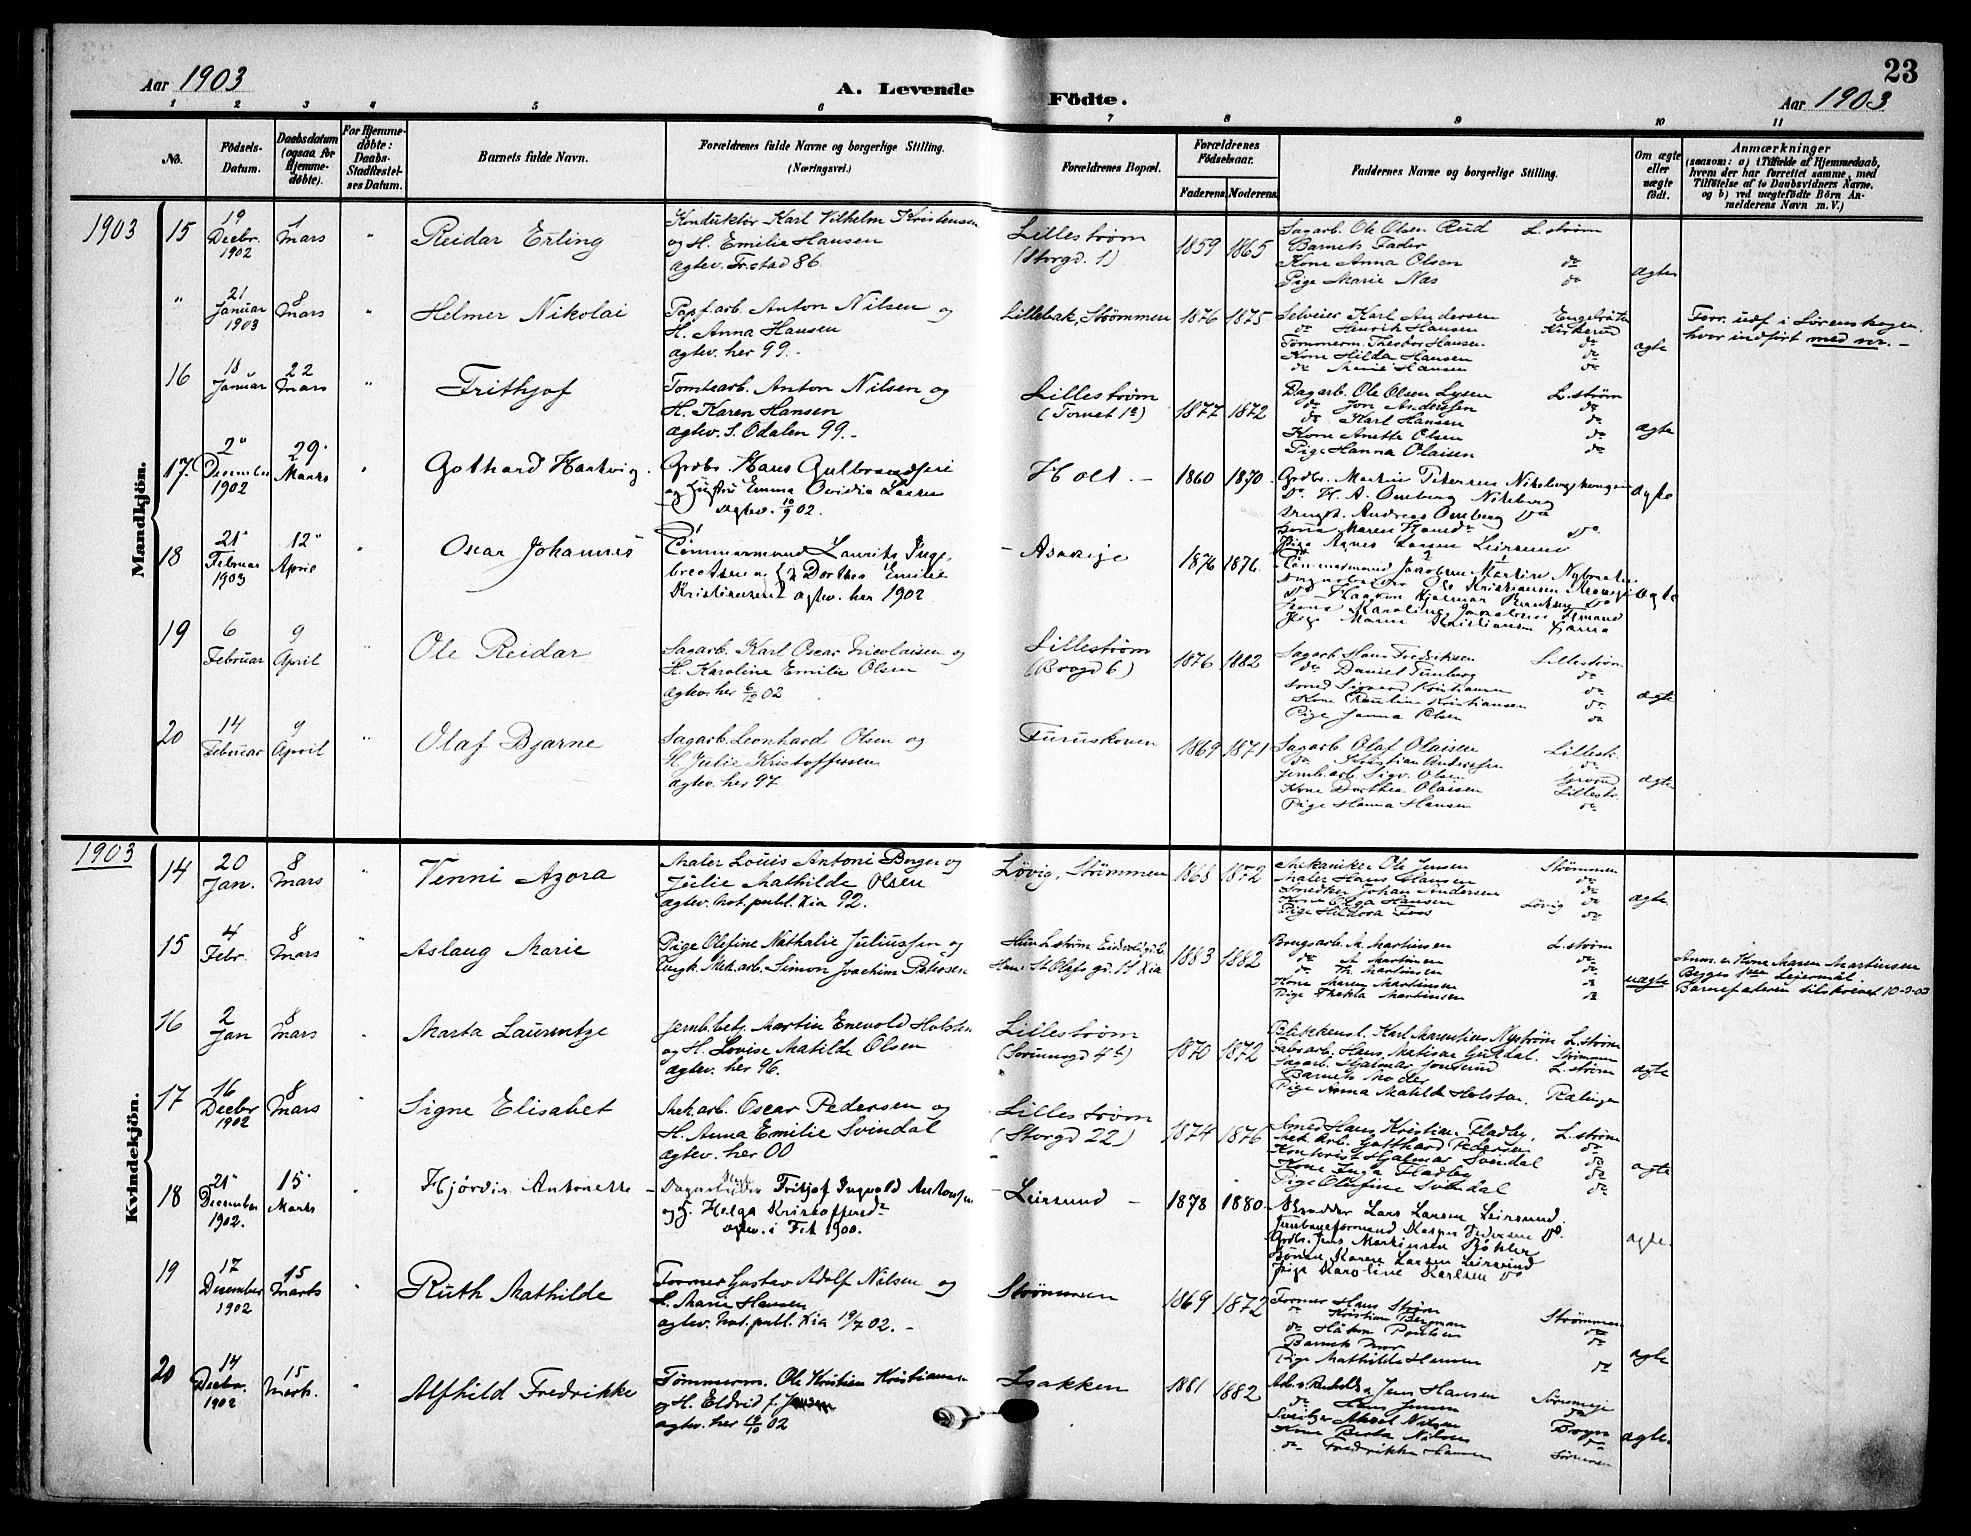 23
Aar 1903
A. Levende Födte.
Aar 1903
1 2 3 4 5 6 7 8 9 10 11
No.
Födsels-Datum.
Daabsdatum (ogsaa for Hjemme-döbte).
For Hjemme-döbte: Daabs-Stadfæstelses Datum.
Barnets fulde Navn.
Forældrenes fulde Navne og borgerlige Stilling. (Næringsvei.)
Forældrenes Bopæl.
Forældrenes Födselsaar.
Faderens Moderens
Faddernes Navne og borgerlige Stilling.
Om ægte eller uægte födt.
Anmærkninger
(saasom: a) i Tilfælde af Hjemmedaab, hvem der har forrettet samme, med Tilföielse af to Daabsvidners Navne, og b) ved uægtefödte Börn Anmelderens Navn m. V.)
Mandkjön.
1903
15
19 Decbr. 1902
1 Mars
"
Reidar Erling
Konduktör Karl Vilhelm Kristensen
og H. Emilie Hansen
ægtev. Fr.stad 86.
Lillestrøm
(Storgd. 1)
1859 1865
Sagarb. Ole Olsen Rud L.strøm
Barnets Fader
Kone Anna Olsen do
Pige Marie Næs do
ægte
"
21 Januar 1903
8 Mars
"
Helmer Nikolai
Papf.arb. Anton Nilsen og
H. Anna Hansen
ægtev. her 99.-
Lillebæk, Strømmen
1876 1875
Selveier Karl Andersen
do Henrik Hansen Kirkerud
Tømmerm. Theodor Hansen do
Kone Hilda Hansen do
do Marie Hansen do
ægte
Forr. udf i Lørenskogen,
hvor indført med nr. -
16
18 Januar
22 Mars
"
Frithjof
Tomtearb. Anton Nilsen og
H. Karen Hansen
ægtev. S. Odalen 99.-
Lillestrøm
(Torvet 12)
1877 1872
Dagarb. Ole Olsen L.strøm
do Jon Anderssen do
do Karl Hansen do
Kone Anette Olsen do
Pige Hanna Olaisen do
ægte
17.
2 December 1902
29. Marts
"
Gothard Hartvig.
Grdbr. Hans Gulbrandsen
og Hustru Emma Ovidia Larsen
ægtev. 10/9 02.
Holt. -
1860 1870
Grdbr. Martin Petersen
do H. A. Omberg Nikeberg
Andreas Omberg do
Kone Maren do
Pige Agnes Larsen Leirsund
ægte
18
21 Februar 1903
12 April
"
Oscar Johannes
Tømmermand Laurits Inge-
bretsen og H. Dorthea Emilie
Kristiansen ægtev. her 1902
Asakeje
1876 1876.
Tømmermand
Ole Kristiansen
do Haagon Hjalmar
Kone Karoline
Pige Marie Kristiansen
ægte
19
6 Februar
9 April
"
Ole Reidar
Sagarb. Karl Oscar Nicolaisen og
H. Karoline Emilie Olsen
ægtev. her 6/12 02
Lillestrøm
(Brogd 6)
1876 1882
Sagarb. Hans Fredriksen Lillestrøm
do Daniel Tunberg do
Smed Sigvard Kristiansen do
Kone Pauline Kristiansen do
Pige Janna Olsen do
ægte
20
14 Februar
9 April
"
Olaf Bjarne
Sagarb. Leonhard Olsen og
H. Julie Kristoffersen
ægtev. her 97
Furuskoven
1869 1871
Sagarb. Olaf Olaisen Lillestr.
do Kristian Anderssen do
Jernb.arb. Sigv. Olsen
Kone Dorthea Olaisen Lillestr.
Pige Hanna Hansen do
ægte
Kvindekjön.
1903
14
20 Jan.
8 Mars
"
Venni Azora
Maler Louis Antoni Berger og
Julie Mathilde Olsen
ægtev. not. publ. Kia 92.
Løvig, Strømmen
1868 1872
Mekaniker Ole Jensen Strømmen
Maler Hans Hansen do
Smedker Johan Andersen do
Kone Olga Hansen Løvig do
Pige Hildora Foss do
ægte.
15
4 Febr.
8 Mars
"
Aslaug Marie
Pige Olefine Nathalie Juliussen og
Ungk. Mek.arb. Simon Joachim Petersen
Hun L.strøm
Han St Olafs gd. 11 Kia
1883 1882
Brugsarb. M. Martinsen L.strøm
do A. Martinsen do
do Th. Martinsen do
Kone Maren Martinsen do
Pige Thekla Martinsen do
uægte
Anm. v. Kone Maren Martinsen
Begges 1ste Leiermål.
Barnefaderen tilskrevet 10-3-03
16
2 Jan
8 Mars
"
Marta Laurentze
Jernb.bet. Martin Enevold Holsten
og H. Lovise Matilde Olsen
ægtev. her 96.
Lillestrøm
(Sørumsgd 4b)
1870 1872
Blikkensl. Karl Marentius Nystrøm L.strøm
Fabr.arb. Hans Matisen Guldal. Strømmen
Sagarb. Hjalmar L.strøm
Barnets Moder
Pige Anna Matilde Holsten, Rælingen
ægte
17
16 Decbr 1902
8 Mars
"
Signe Elisabet
Mek.arb. Oscar Pedersen og
H. Anna Emilie Svindal
ægtev. her 00
Lillestrøm
(Storgd 22)
1874 1876
Smed Hans Kristian Fladby, L.strøm
Mek.arb. Gotthard Pedersen do
Kontorist Hjalmar Svindal do
Kone Inga Fladby do
Pige Olufine Svindal do
ægte
18
21 December 1902.
15 Marts
"
Hjørdis Antonette -
Dagarbeider Fritjof Ingvald Antonsen
og H. Helga Kristoffersdr
ægtev. i Fet 1900.
Leirsund -
1878 1880.
Skrædder Lars Larsen Leirsund
Jernbaneformand Kasper Pedersen do
Grdbr. Jens Martinsen
Karen Larsen Leirsund
Pige Karoline Karlsen do
ægte.
19
17 December 1902
15 Marts
Ruth Mathilde
Former Gustav Adolf Nilsen og
H. Marie Hansen
ægtev. not. publ. Kia 19/7 02.-
Strømmen
1869 1872
Former Hans Strøm Strømmen
do Kristian Bergman do
do Håkon Poulsen do
Barnets Mor
Pige Mathilde Hansen do
ægte
20
14 Decbr. 1902
15 Marts.
"
Alfhild Fredrikke
Tømmerm. Ole Kristian Kristiansen
og H. Eldrid f. Jensen
ægtev. her 19/10 02
Isakken
1881 1882
Jens Hansen
do Hans Jensen do
Axel Nilsen
Kone Berta Nilsen do
do Fredrikke Hansen
ægte.